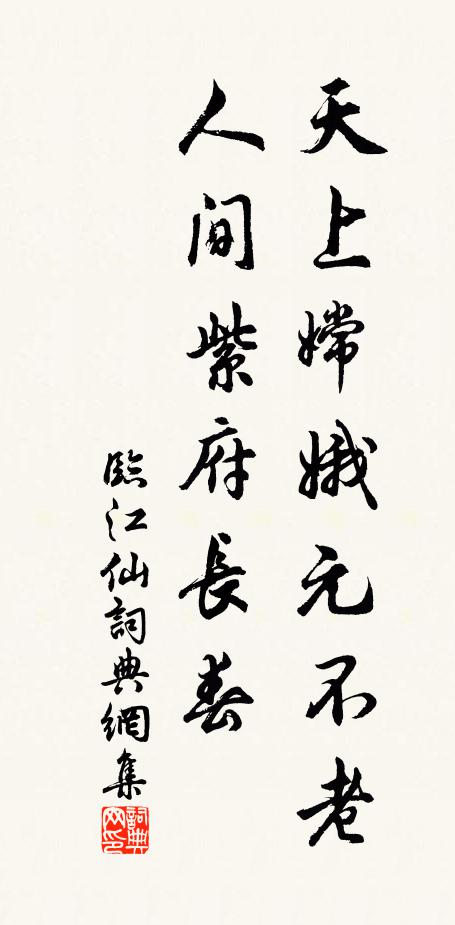 天上嫦娥元不老
人间紫府長春
臨江仙詞典網集
詞典网印